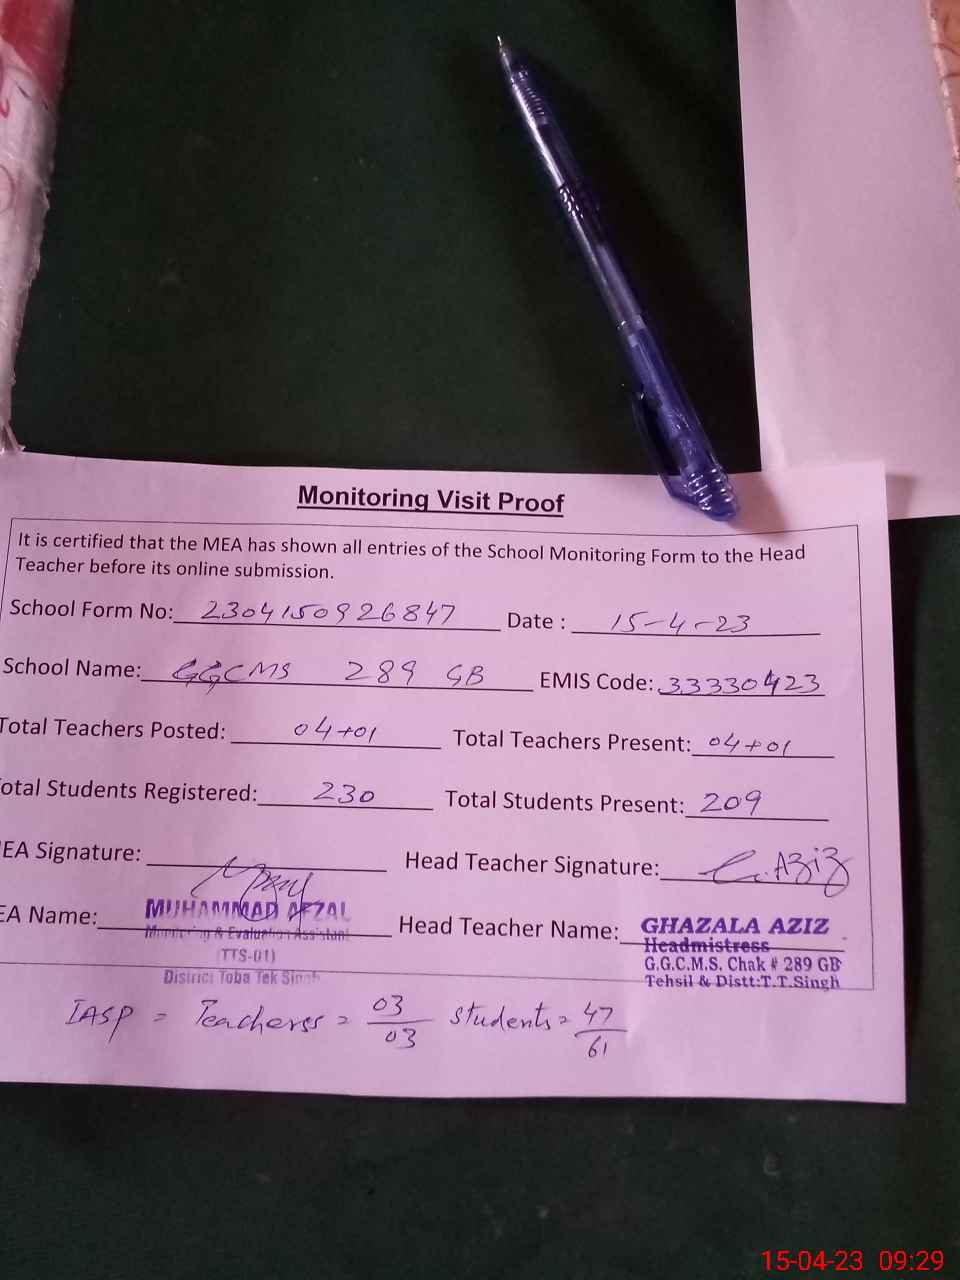 Monitoring Visit Proof
It is certified that the MEA has shown all entries of the School Monitoring Form to the Head
Teacher before its online submission.
School Form No: 2304150926847 Date : 15-4-23
School Name: GGCMS 289 GB EMIS Code: 33330423
Total Teachers Posted: 04+01 Total Teachers Present: 04+01
otal Students Registered: 230 Total Students Present: 209
EA Signature: Head Teacher Signature: G.AZiZ
EA Name: MUHAMMAD AFZAL Head Teacher Name: GHAZALA AZIZ
Monitoring & Evaluation Assistant Headmistress
(TTS-01) G.G.C.M.S. Chak # 289 GB
District Toba Tek Singh Tehsil & Distt:T.T.Singh
IASP = Teacherss = 03/03 students = 47/61
15-04-23 09:29